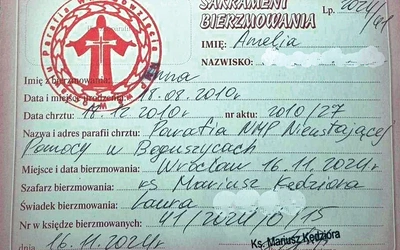 SAKRAMENT
BIERZMOWANIA
Lp. 2024/41
IMIĘ: Amelia
NAZWISKO:
Imię z bierzmowania: Anna
Data i miejsce urodzenia: 18.08.2010r
Data chrztu: 18.12.2010r nr aktu: 2010/27
Nazwa i adres parafii chrztu: Parafia NMP Nieustającej
Pomocy w Boguszycach
Miejsce i data bierzmowania: Wrocław 16.11.2024r
Szafarz bierzmowania: ks Mariusz Kędziora
Świadek bierzmowania: Laura
Nr w księdze bierzmowanych: 41/2024/0/15
dnia 16.11.2024r
Ks. Mariusz Kędziora